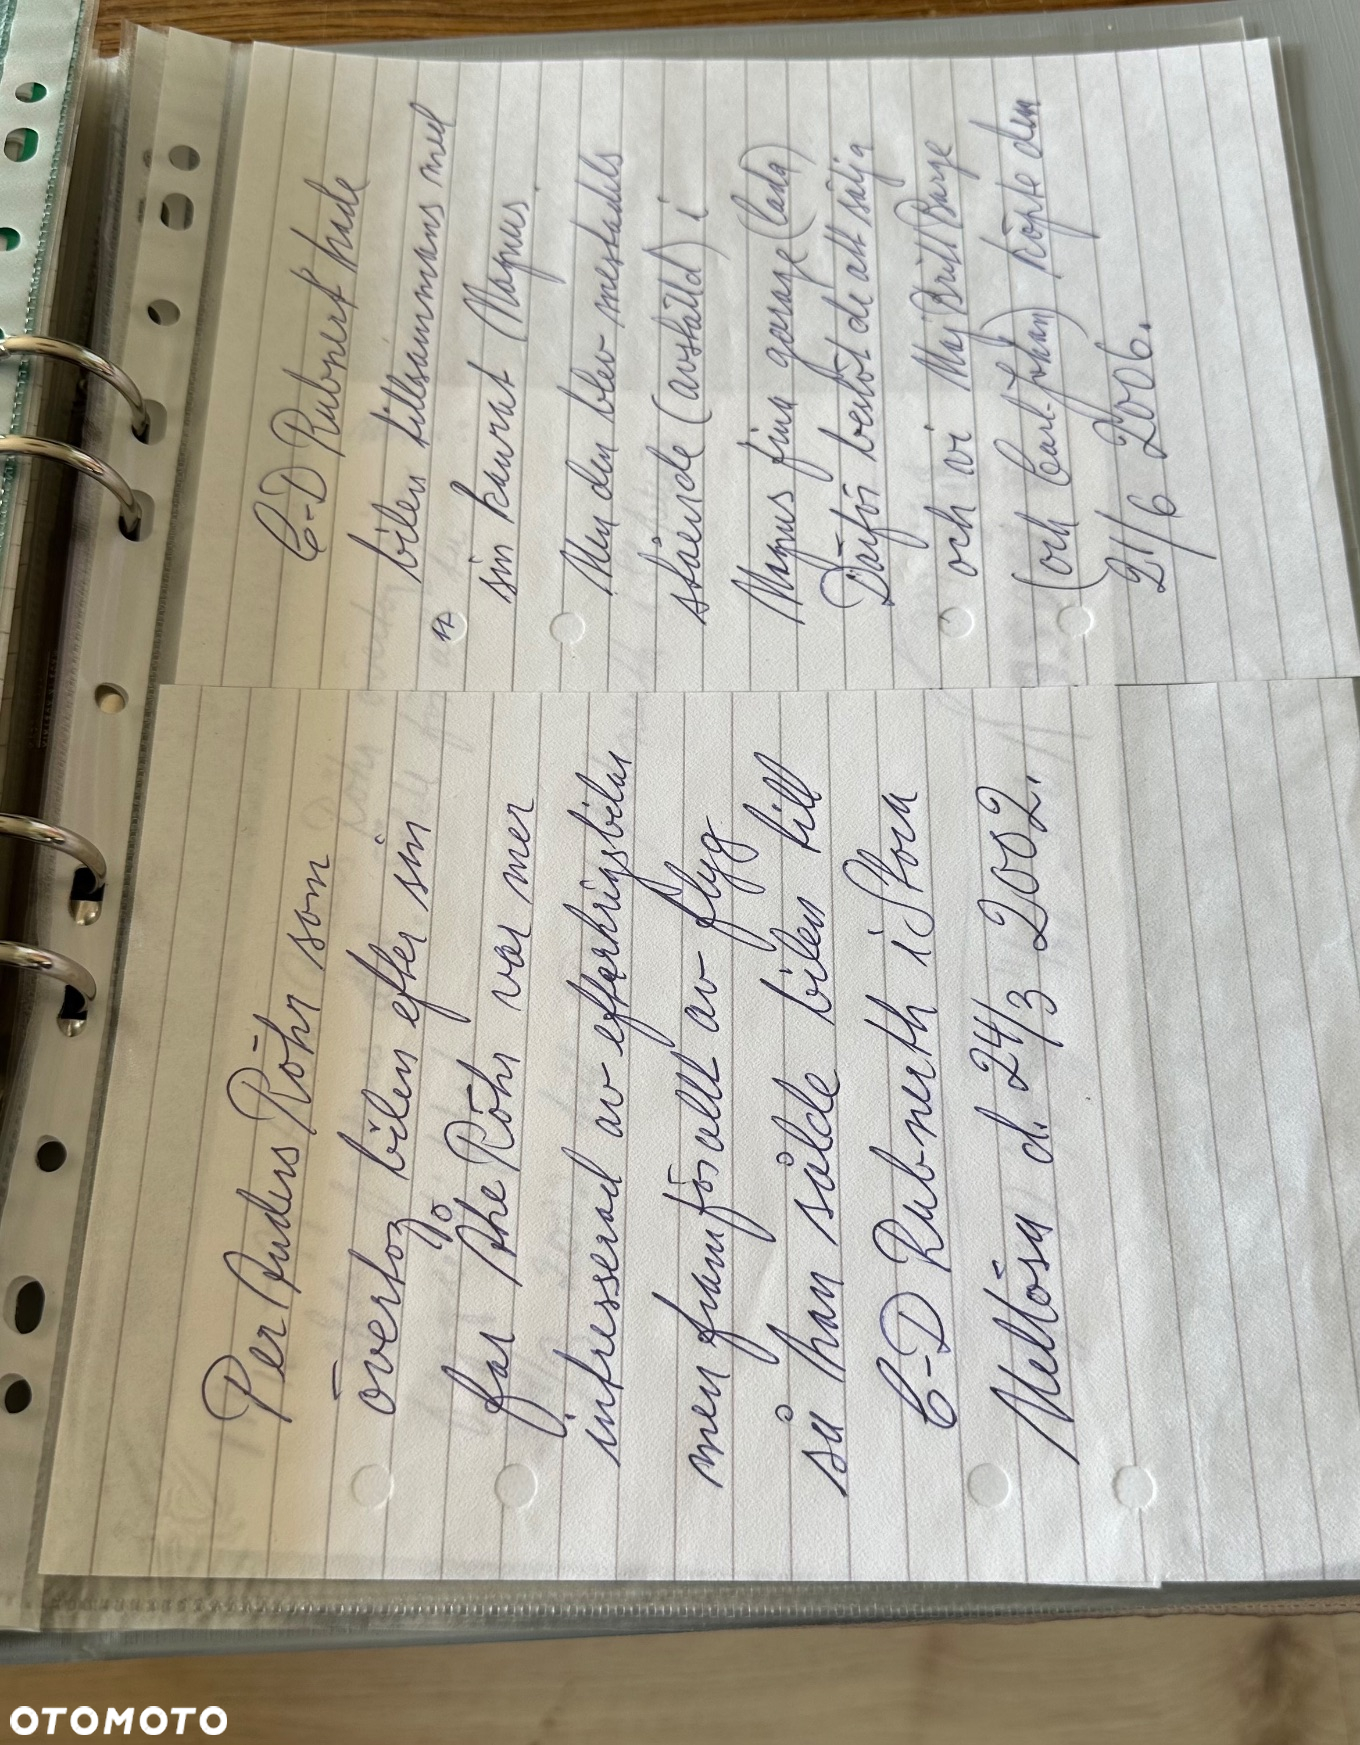 Per Anders Röhr som
övertog bilen efter sin
far Åke Röhr var mer
intresserad av efterkrigsbilar
men framförallt av flyg
så han sålde bilen till
C-D Rubnerth i Stora
Mellösa d. 24/3 2002.
C-D Rubnert hade
bilen tillsammans med
sin kamrat Magnus.
Men den blev mestadels
stående (avställd) i
Magnus fina garage (lada)
Därför beslöt de att sälja
och vi Maj Britt Barge
(och Carl-Johan) köpte den
21/6 2006.
OTOMOTO